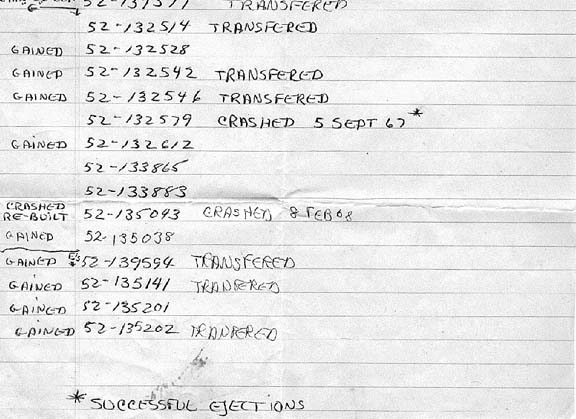 TRANSFERED
52-132514 TRANSFERED
GAINED 52-132528
GAINED 52-132542 TRANSFERED
GAINED 52-132546 TRANSFERED
52-132579 CRASHED 5 SEPT 67*
GAINED 52-132612
52-133865
52-133883
CRASHED
RE-BUILT 52-135093 CRASHED 8 FEB 68
GAINED 52-135038
GAINED 52-139594 TRANSFERED
GAINED 52-135141 TRANFERED
GAINED 52-135201
GAINED 52-135202 TRANFERED
* SUCCESSFUL EJECTIONS